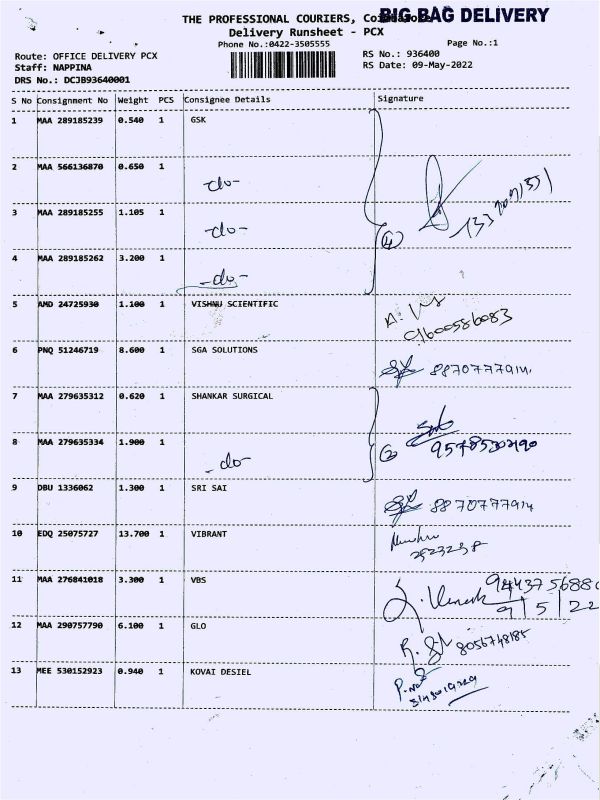 THE PROFESSIONAL COURIERS, Coimbatore
BIG BAG DELIVERY
Delivery Runsheet - PCX
Phone No.:0422-3505555
Page No.:1
Route: OFFICE DELIVERY PCX
RS No.: 936400
Staff: NAPPINA
RS Date: 09-May-2022
DRS No.: DCJB93640001
S No Consignment No Weight PCS Consignee Details Signature
1 MAA 289185239 0.540 1 GSK
2 MAA 566136870 0.650 1 -do-
3 MAA 289185255 1.105 1 -do-
(4)
4 MAA 289185262 3.200 1 -do-
5 AMD 24725930 1.100 1 VISHNU SCIENTIFIC
9600586083
6 PNQ 51246719 8.600 1 SGA SOLUTIONS 8870777914
7 MAA 279635312 0.620 1 SHANKAR SURGICAL
8 MAA 279635334 1.900 1 -do- (2)
9 DBU 1336062 1.300 1 SRI SAI 8870777914
10 EDQ 25075727 13.700 1 VIBRANT
2523238
11 MAA 276841018 3.300 1 VBS
9/5/22
12 MAA 290757790 6.100 1 GLO 8056748185
13 MEE 530152923 0.940 1 KOVAI DESIEL